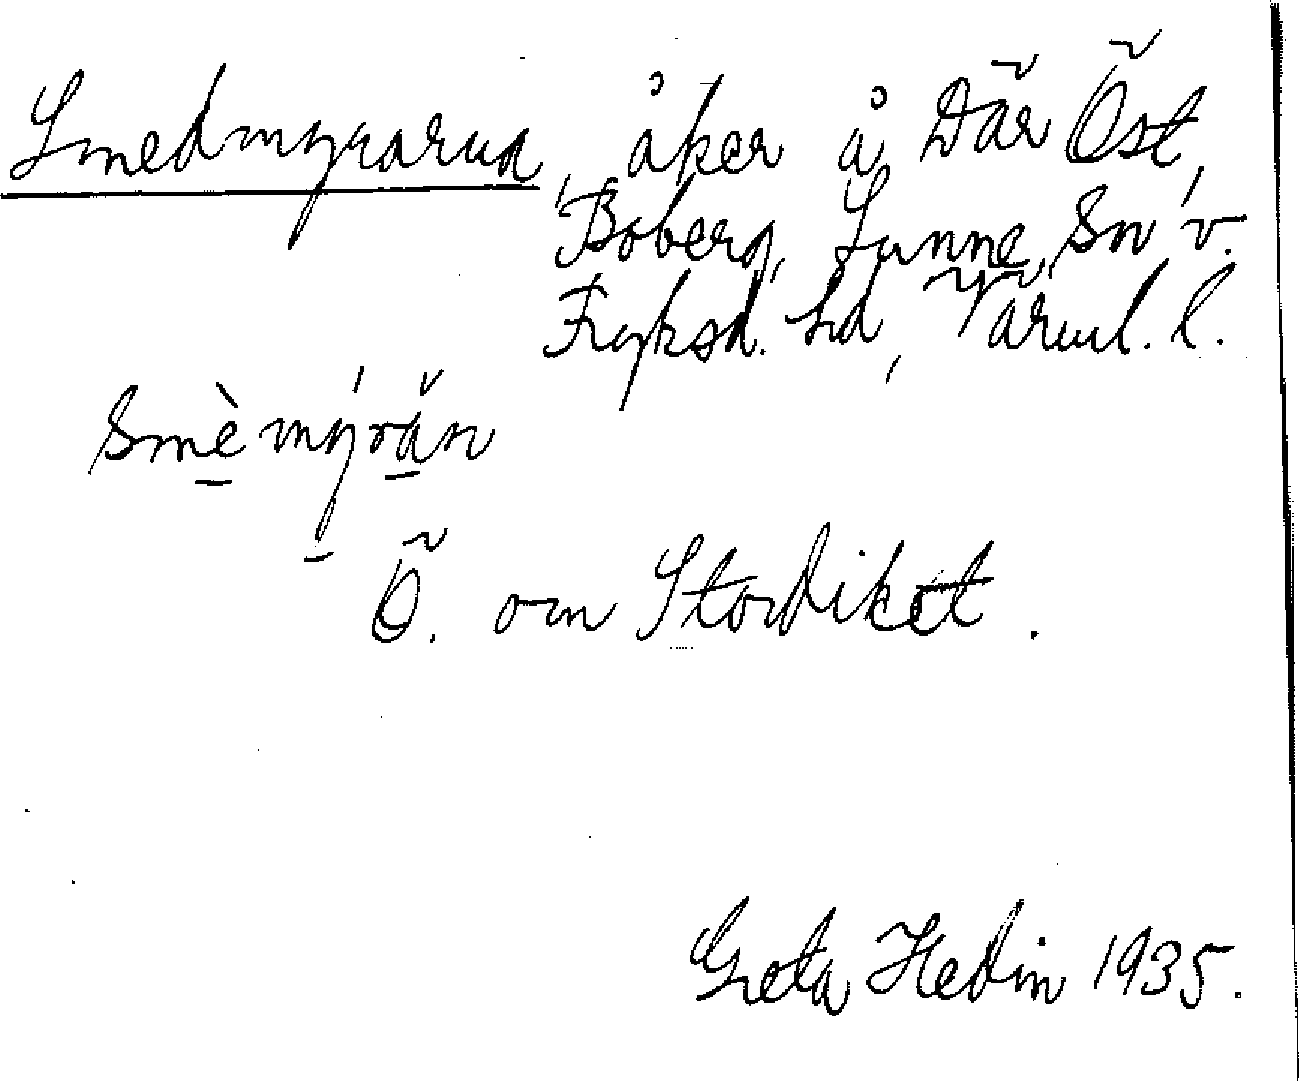 Smedmyrarna, åker å Där Öst,
Boberg, Sunne sn v.
Fryksd. hd, Värml. l.
Smèmy̍răn
Ö. om Stordiket.
Greta Hedin 1935.